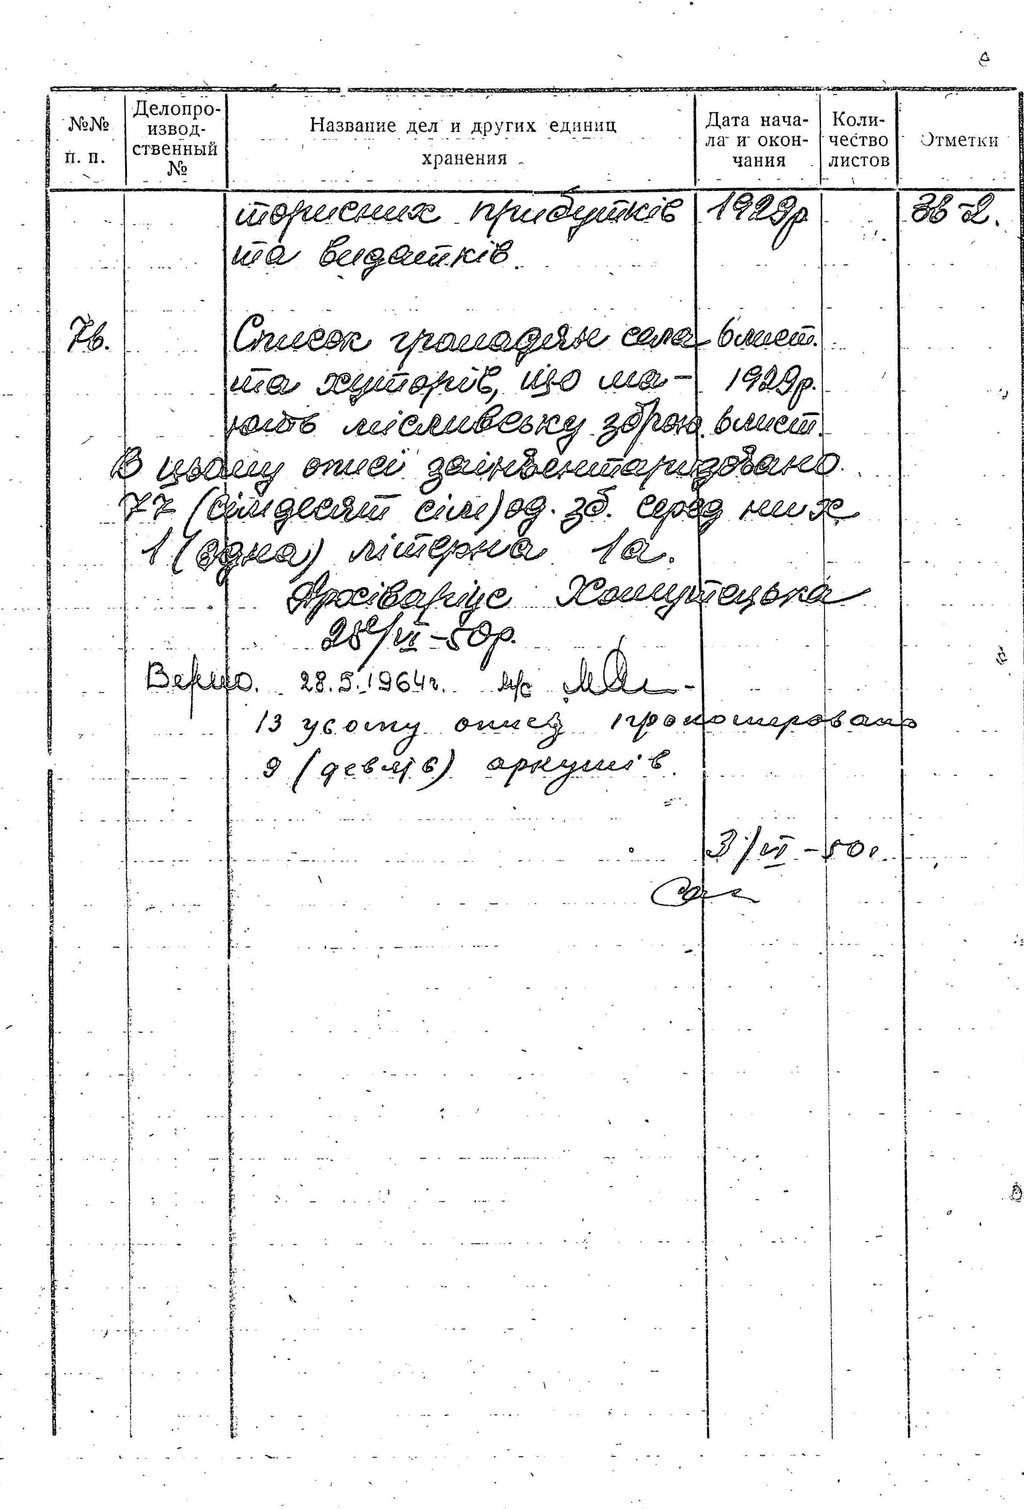 №№ п. п.
Делопро-
извод-
ственный
№
Название дел и других единиц
хранения
Дата нача-
ла и окон-
чания
Коли-
чество
листов
Отметки
торисних прибутків 1929р
та видатків.
76. Список громадян села 6 лист.
та хуторів, що ма- 1929р.
ють місливську зброю. 6 лист.
В цьому описі заінвентаризовано
77 (сімдесят сім) од. зб. серед них
1 (одна) літерна 1а.
Архіваріус Хомутецька
28/VI-50р.
Верно. 28.5.1964г.
В усьому опису
9 (девять) аркушів
3/VI-50г